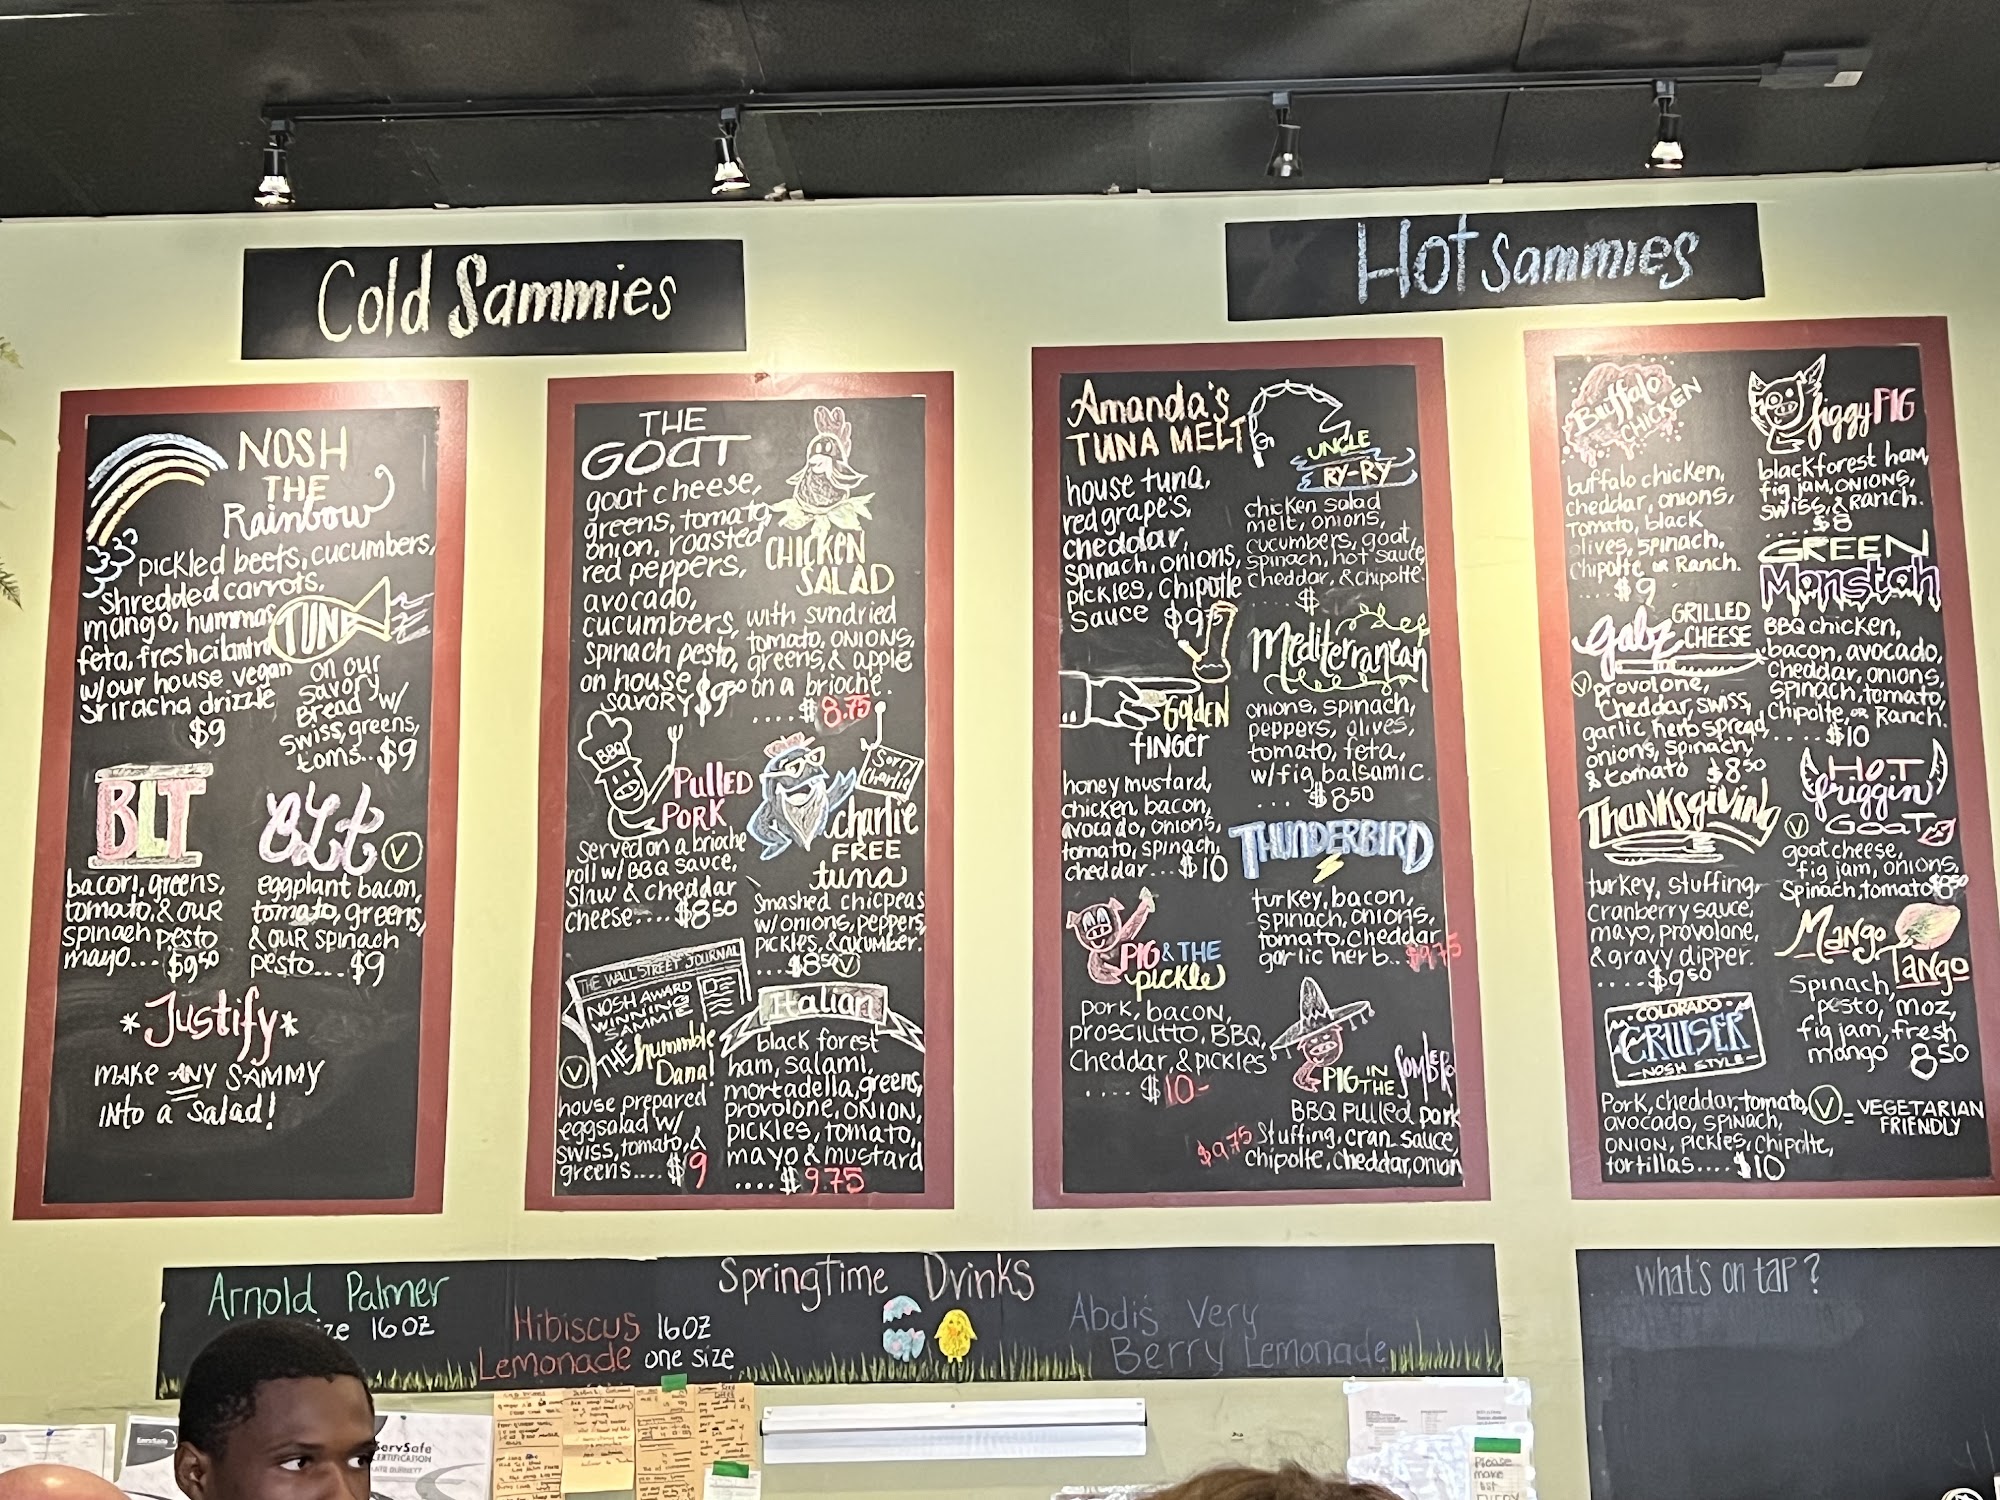 Cold Sammies
Hot Sammies
NOSH
THE
Rainbow
pickled beets, cucumbers,
shredded carrots,
mango, hummas
feta, fresh cilantro
w/our house vegan
sriracha drizzle
$9
TUNA
on our
savory
Bread w/
swiss, greens,
toms.. $9
BLT
bacon, greens,
tomato, & our
spinach pesto
mayo... $9.50
ELT
V
eggplant bacon,
tomato, greens,
& our spinach
pesto.... $9
*Justify*
make any sammy
into a salad!
THE
GOAT
goat cheese,
greens, tomato,
onion, roasted
red peppers,
avocado,
cucumbers,
spinach pesto,
on house
savory $9.50
CHICKEN
SALAD
with sundried
tomato, onions,
greens, & apple
on a brioche.
.... $8.75
BBQ
Pulled
Pork
served on a brioche
roll w/ BBQ sauce,
slaw & cheddar
cheese.... $8.50
Sorry
Charlie
charlie
FREE
tuna
smashed chicpeas
w/onions, peppers,
pickles, & cucumber.
.... $8.50 V
THE WALL STREET JOURNAL
NOSH AWARD
WINNING
SAMMIE
THE hummble
Dana!
V
house prepared
eggsalad w/
swiss, tomato, &
greens.... $9
Italian
black forest
ham, salami,
mortadella, greens,
provolone, onion,
pickles, tomato,
mayo & mustard
.... $9.75
Amanda's
TUNA MELT
house tuna,
red grape's,
cheddar,
spinach, onions,
pickles, chipotle
sauce $9.75
UNCLE
RY-RY
chicken salad
melt, onions,
cucumbers, goat,
spinach, hot sauce
cheddar, & chipolte.
.... $
Golden
finger
honey mustard,
chicken, bacon,
avocado, onions,
tomato, spinach,
cheddar... $10
Mediterranean
onions, spinach,
peppers, olives,
tomato, feta,
w/fig balsamic.
... $8.50
THUNDERBIRD
turkey, bacon,
spinach, onions,
tomato, cheddar
garlic herb.. $9.75
PIG & THE
pickle
pork, bacon,
prosciutto, BBQ,
cheddar, & pickles
.... $10-
PIG IN
THE Sombrero
BBQ pulled pork
$9.75 stuffing, cran sauce,
chipolte, cheddar, onion
Buffalo
CHICKEN
buffalo chicken,
cheddar, onions,
tomato, black
olives, spinach,
chipolte or Ranch.
$9
figgy PIG
blackforest ham,
fig jam, onions,
swiss, & ranch.
.... $8
GREEN
Monstah
BBQ chicken,
bacon, avocado,
cheddar, onions,
spinach, tomato,
chipolte, or Ranch.
.... $10
Gabz GRILLED
CHEESE
V provolone,
cheddar, swiss,
garlic herb spread,
onions, spinach,
& tomato $8.50
HOT
friggin
GOAT
V
goat cheese,
fig jam, onions,
spinach, tomato $8.50
Thanksgiving
turkey, stuffing,
cranberry sauce,
mayo, provolone,
& gravy dipper.
.... $9.50
Mango
Tango
Spinach,
pesto, moz,
fig jam, fresh
mango 8.50
COLORADO
CRUISER
- NOSH STYLE -
Pork, cheddar, tomato,
avocado, spinach,
onion, pickles, chipolte,
tortillas.... $10
V = VEGETARIAN
FRIENDLY
Springtime Drinks
Arnold Palmer
size 16oz
Hibiscus 16oz
Lemonade one size
Abdi's Very
Berry Lemonade
what's on tap?
ServSafe
CERTIFICATION
Please
make